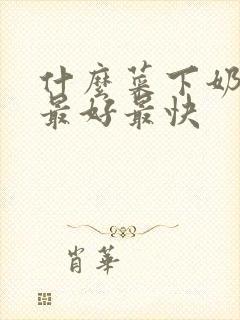 什麼菜下奶
最好最快
肖華